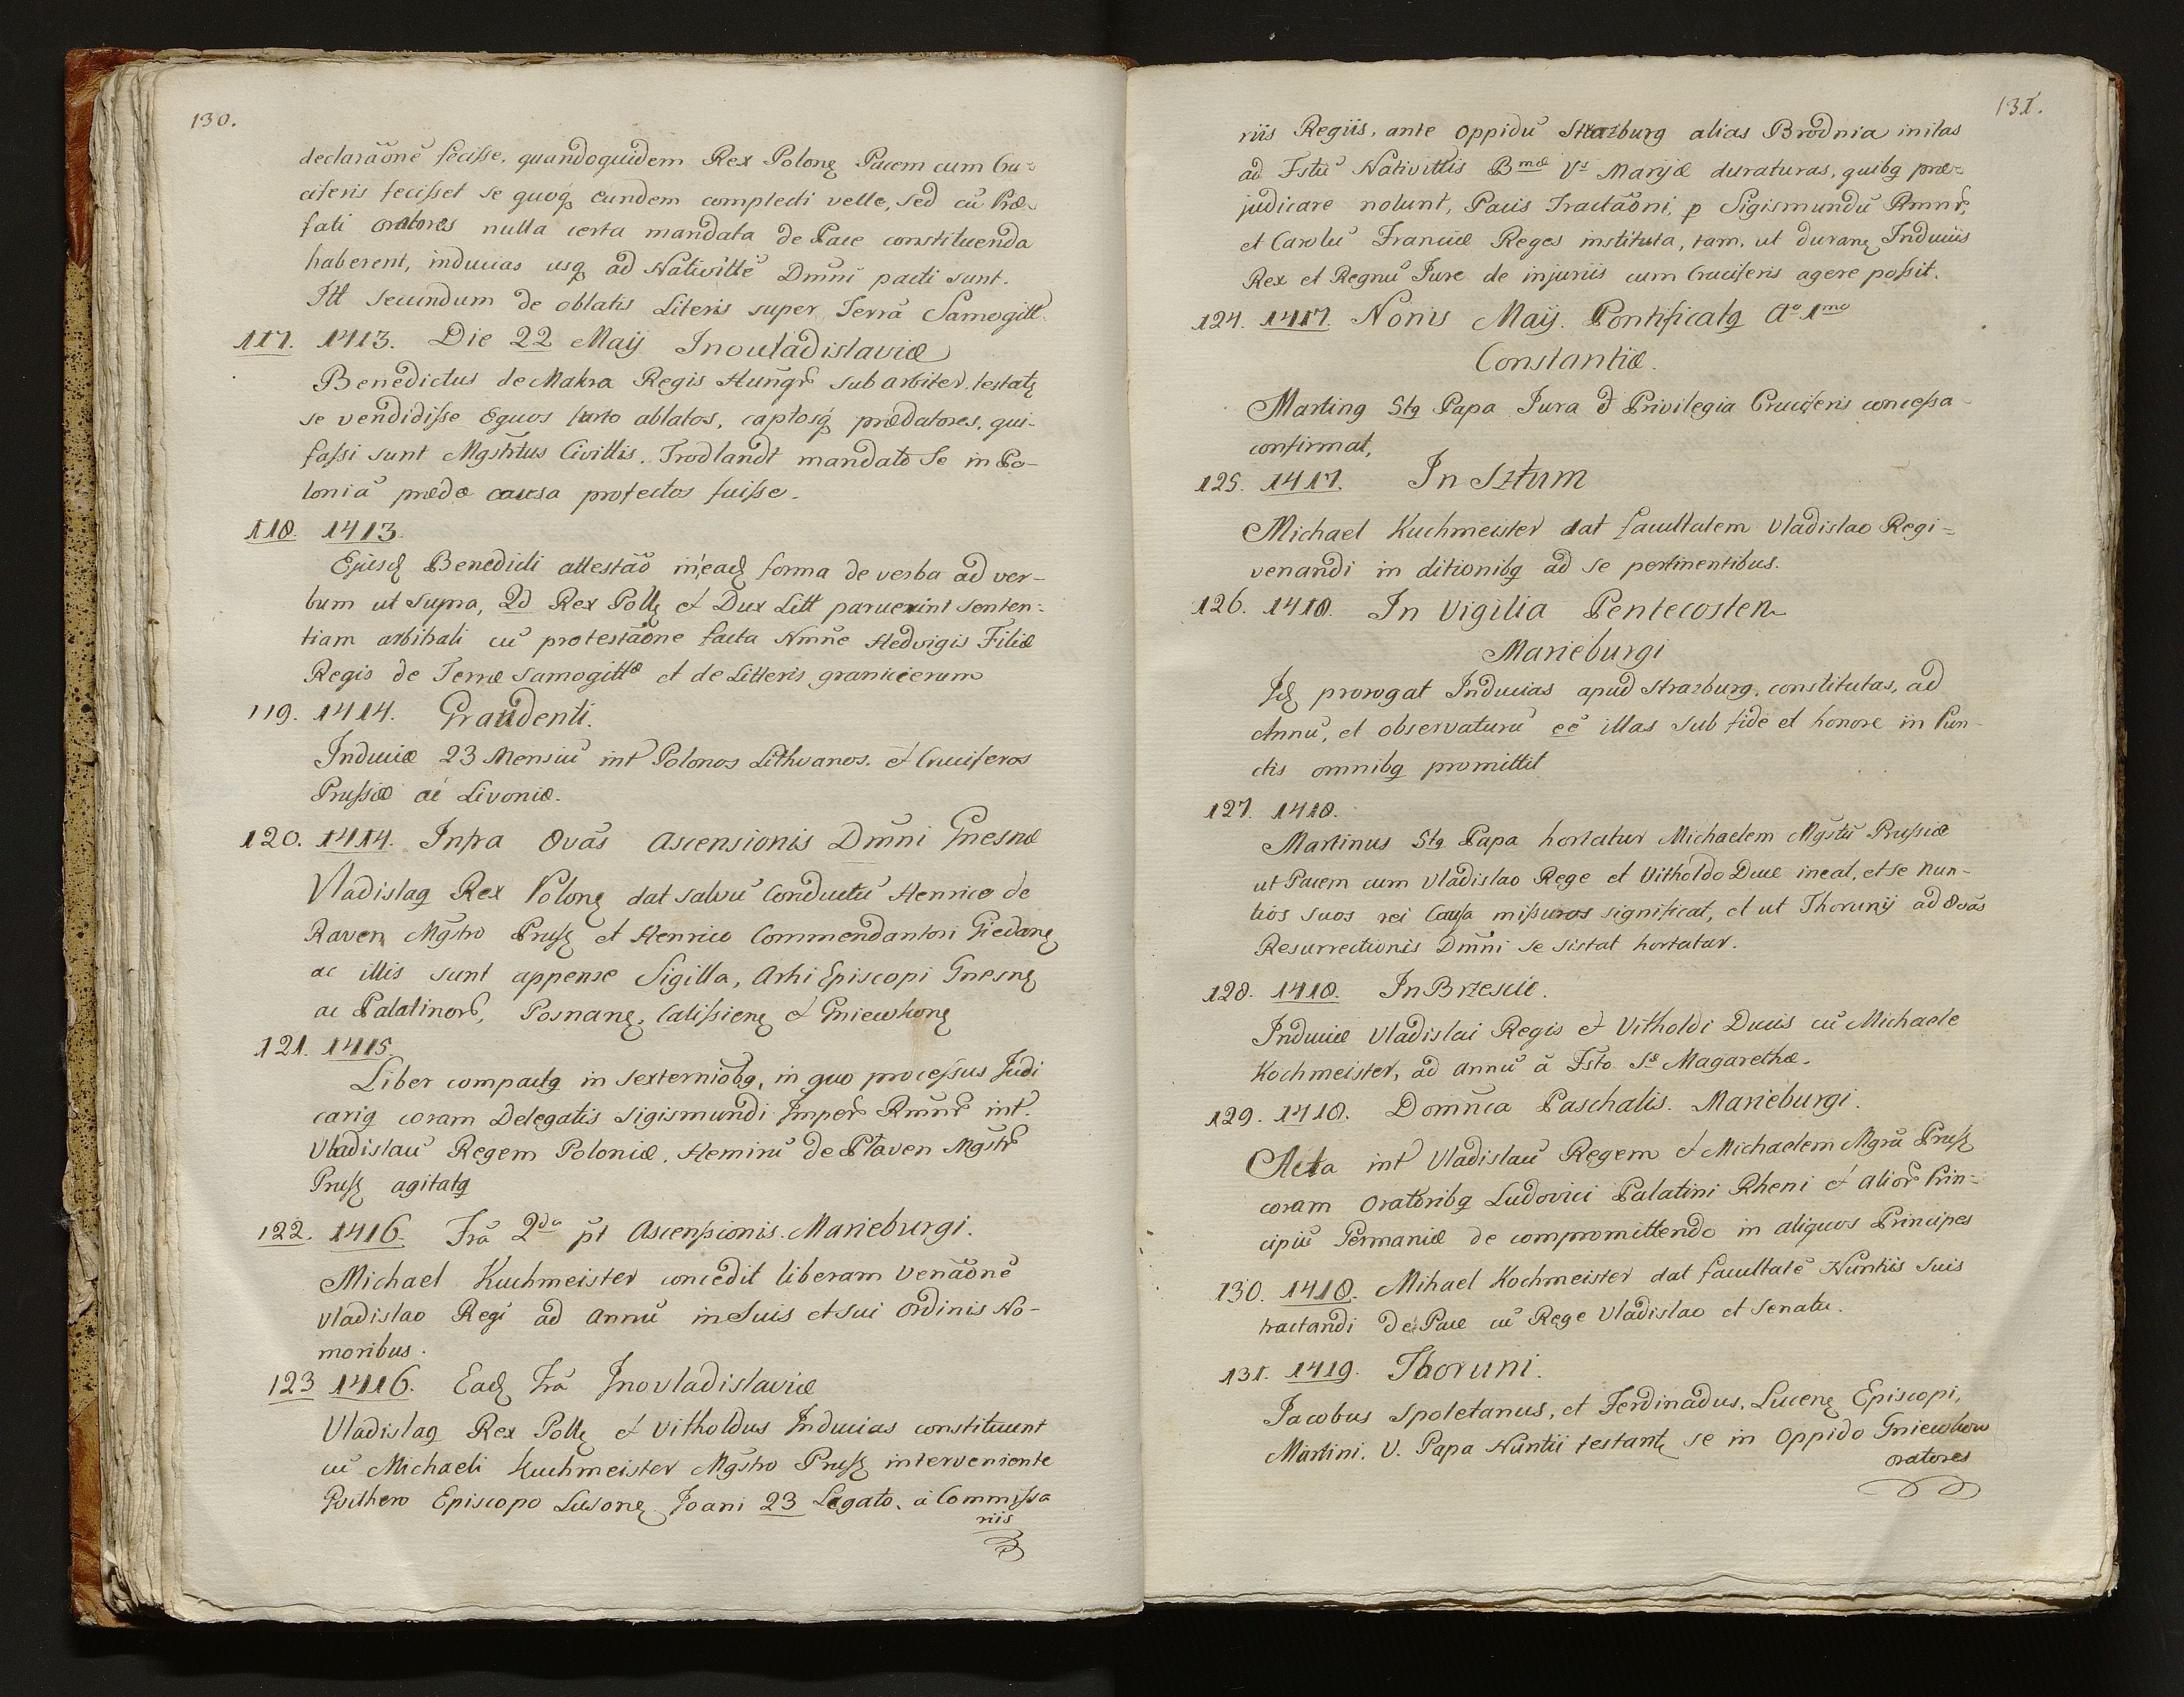 130.
declaraōnē fecisse, quandoquidem Rex Polonꝫ Pacem cum Cru-
ciferis fecisset se quoqꝫ eundem complecti velle, sed cū Præ-
fati oratores nulla certa mandata de Pace constituenda
haberent, inducias usqꝫ ad Nativittē Dmni pacti sunt.
Itt secundum de oblatis Literis super Terrā Samogitt.
117. 1413. Die 22 Maij Inouladislaviæ
Benedictus de Makra Regis Hungr̃ sub arbiter, testatꝫ
se vendidisse Equos furto ablatos, captosqꝫ prædatores, qui
fassi sunt Mgsh̃tus Civillis. Trodlandt mandatō Se in Po-
loniā prædæ causa profectos fuisse.
118. 1413.
Ejusdꝫ Benedicti attestāo in eadꝫ forma de verba ad ver-
bum ut supra, 2d Rex Pollꝫ et Dux Litt paruerint senten-
tiam arbitrali cū protestāone facta Nmñe Hedvigis Filiæ
Regis de Terræ Samogittæ et de Litteris granicierum
119. 1414. Graudenti.
Induciæ 23 Mensiū int̃ Polonos Lithvanos. et Cruciferos
Prussiæ ac Livoniæ.
120. 1414. Infra 8vas Ascensionis Dmñi Gnesnæ
Vladislaqꝫ Rex Polonꝫ dat salvū conductū Henrico de
Raven Mgs̃tro Prusꝫ et Henrico Commendantori Giedanꝫ
ac illis sunt appense Sigilla, Arhi Episcopi Gnesnꝫ
ac Palatinorꝫ, Posnanꝫ, Calissienꝫ et Gniewkonꝫ
121. 1415.
Liber compactꝫ in sexterniōbꝫ, in quo processus Judi
cariꝫ coram Delegatis Sigismundi Imper̃ Rmnr̃ int̃.
Vladislaū Regem Poloniæ, Heminū de Plaven Mgstr̃
Prusꝫ agitatꝫ
122. 1416. Frā 2da pt Ascenssionis. Marieburgi.
Michael Kuchmeister concedit liberam Venāonē
Vladislao Regi ad Annū in Suis et sui Ordinis No-
moribus.
123 1416. Eadꝫ Frā Jnovladislaviæ
Vladislaqꝫ Rex Pollꝫ et Vitholdus Inducias constituunt
cū Michaeli Kuchmeister Mgs̃tro Prusꝫ interveniente
Posthero Episcopo Lusonꝫ Joani 23 Legato. a Commissa
riis
131.
riis Regiis, ante oppidū Strazburg alias Brodnia initas
ad Fstū Nativittis Bmæ Vs Marijæ duraturas, quibꝫ præ-
judicare nolunt, Pacis Tractāoni, p Sigismundū Rmnr̃,
et Carolū Franciæ Reges instituta, tam. ut duranꝫ Induciis
Rex et Regnū Jure de injuriis cum Cruciferis agere possit.
124. 1417. Nonis Maij. Pontificatꝫ Ao 1mo
Constantiæ.
Martinꝫ 5tꝫ Papa Jura et Privilegia Cruciferis concessa
confirmat,
125. 1417. In Sztum
Michael Kuchmeister dat facultatem Vladislao Regi-
venandi in ditionibꝫ ad se pertinentibus.
126. 1418. In Vigilia Pentecosten
Marieburgi
Idꝫ prorogat Inducias apud Strazburg, constitutas, ad
Annū, et observaturū eē illas sub fide et honore in Pun-
ctis omnibꝫ promittit
127. 1418.
Martinus 5tꝫ Papa hortatur Michaelem Mgstū Prussiæ
ut Pacem cum Vladislao Rege et Vitholdo Duce ineat, et se Nun-
tios suos rei Causa missuros significat, et ut Thorunij ad 8vas
Resurrectionis Dmñi se sistat hortatur.
128. 1418. In Brzescie.
Induciæ Vladislai Regis et Vitholdi Ducis cū Michaele
Kochmeister, ad annū ā Fsto Sæ Magarethæ.
129. 1418. Domñca Paschalis. Marieburgi.
Acta int̃ Vladislaū Regem et Michaelem Mgrū Prusꝫ
coram Oratoribꝫ Ludovici Palatini Rheni et alior̃ Prin-
cipiū Germaniæ de compromittendo in aliquos Principes
130. 1418. Mihael Kochmeister dat facultatē Nuntiis suis
tractandi de Pace cū Rege Vladislao et Senatu.
131. 1419. Thoruni.
Jacobus Spoletanus, et Ferdinadus. Lucenꝫ Episcopi,
Martini. V. Papa Nuntii testantꝫ se in Oppido Gniewkow
oratores